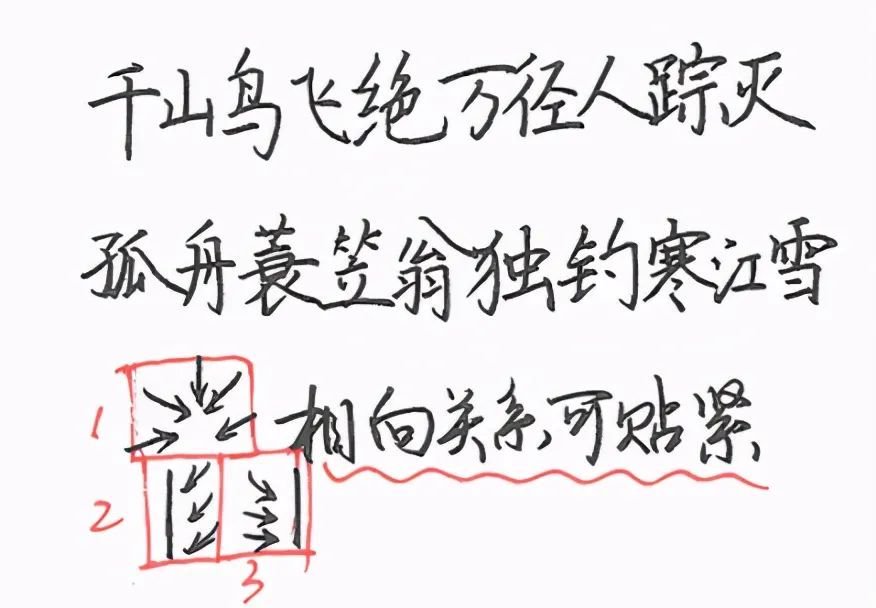 千山鸟飞绝万径人踪灭
孤舟蓑笠翁独钓寒江雪
1 相向关系可贴紧
2
3